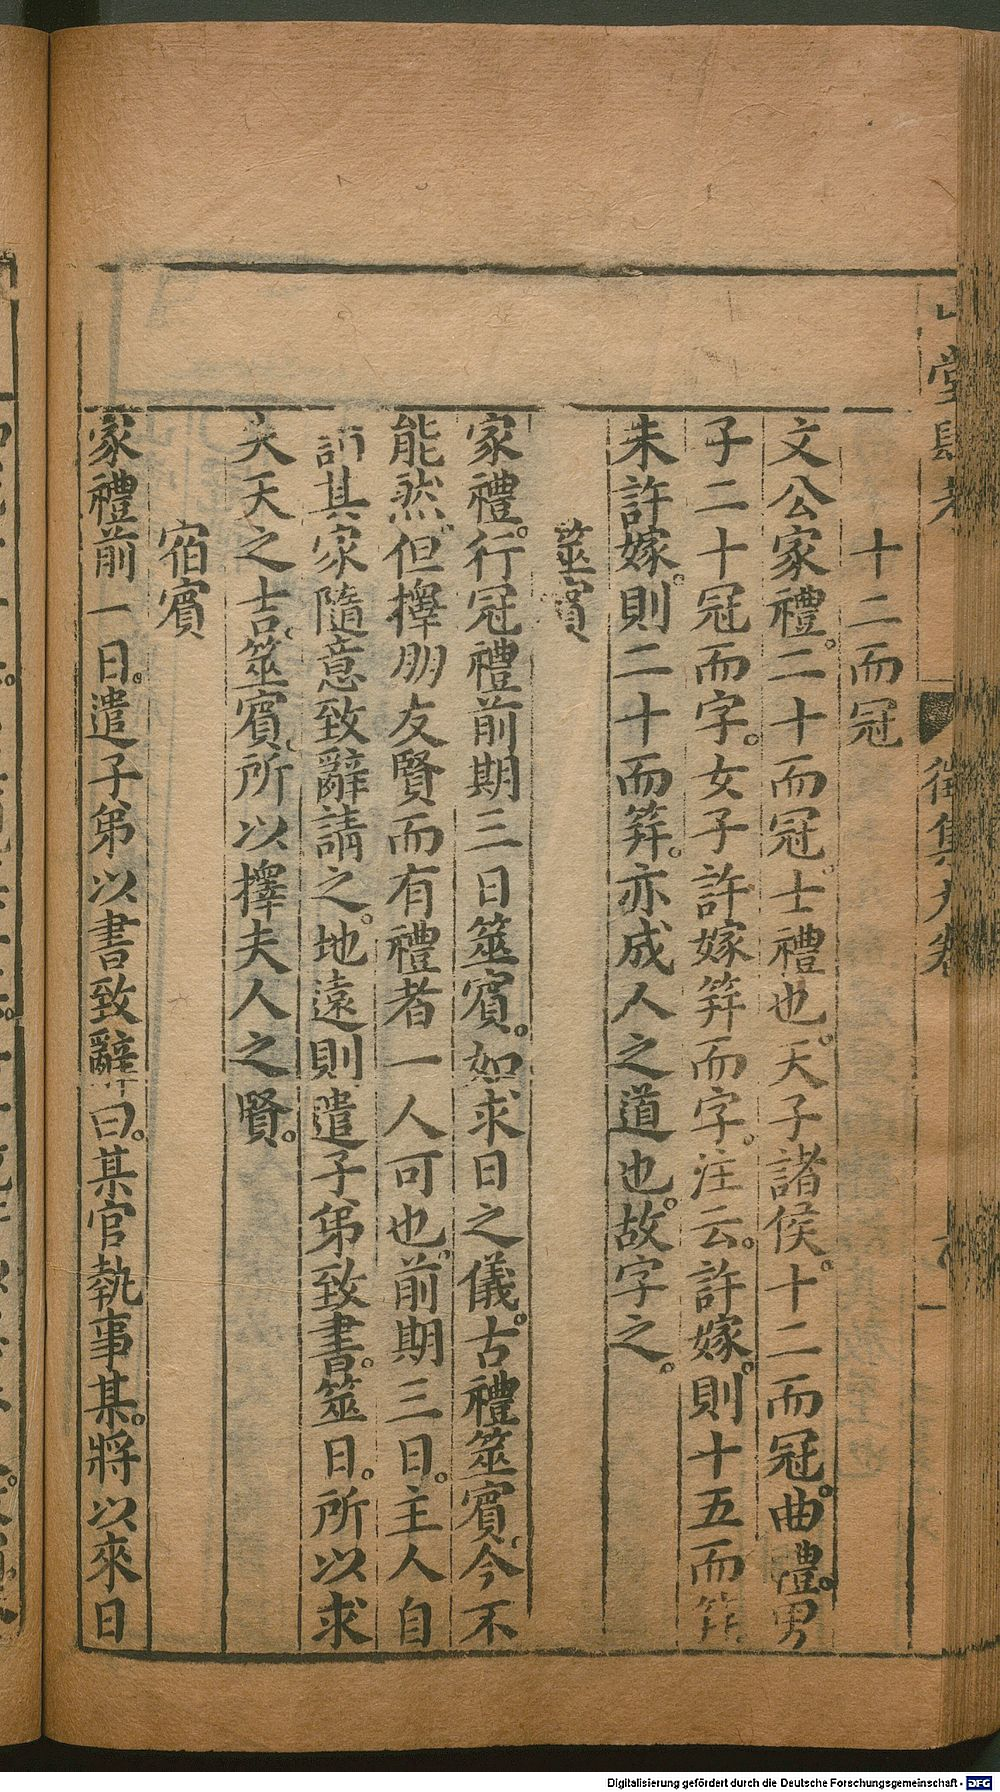 山堂肆考 徵集九卷
十二而冠
文公家禮。二十而冠。士禮也。天子諸侯。十二而冠。曲禮。男
子二十冠而字。女子許嫁笄而字。注云。許嫁。則十五而笄
未許嫁。則二十而笄。亦成人之道也。故字之。
筮賓
家禮。行冠禮前期三日筮賓。如求日之儀。古禮筮賓。今不
能然。但擇朋友賢而有禮者一人可也。前期三日。主人自
詣其家隨意致辭請之。地遠則遣子弟致書。筮日。所以求
夫天之吉。筮賓。所以擇夫人之賢。
宿賓
家禮前一日。遣子弟以書致辭曰。某官執事某。將以來日
Digitalisierung gefördert durch die Deutsche Forschungsgemeinschaft - DFG